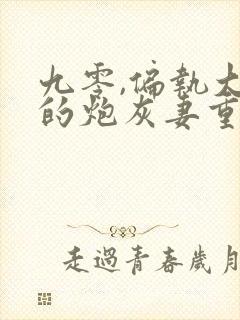 九零,偏執大
的炮灰妻重
走過青春歲月